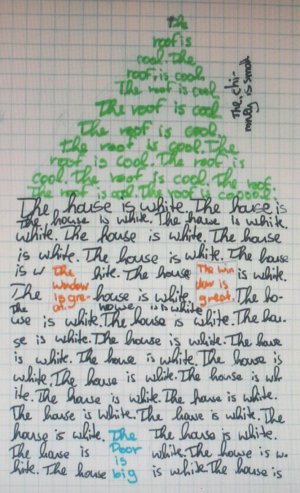 the
roof is
cool. The
roof is cool.
The roof is cool
The roof is cool
The roof is cool.
The roof is cool. The
roof is cool. The roof is
cool. The roof is cool. The roof
The roof is cool. The roof is cooool.
The chi-
mney is small.
The house is white. The house is
The house is white. The house is white.
white. The house is white. The house
is white. The house is white. The house
is w hite. The house is white.
The
window
is gre-
at.
The win
dow is
great.
The house is white. The ho-
The house is white
use is white. The house is white. The hou-
se is white. The house is white. The house
is white. The house is white. The house is
white. The house is white. The house is wh-
ite. The house is white. The house is white.
The house is white. The house is white. The
house is white. The house is white.
The house is white. The house is w-
hite. The house is white. The house is
The
Door
is
big